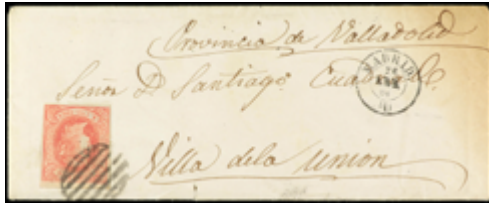 Provincia de Valladolid
Señor D. Santiago
MADRID
Villa dela Union